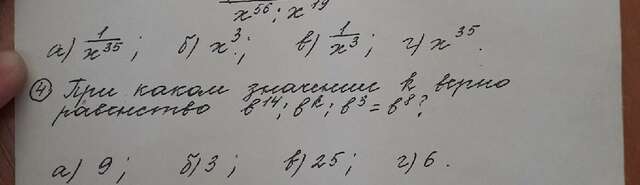 x⁵⁶ ; x¹⁹
а) 1/x³⁵ ; б) x³ ; в) 1/x³ ; г) x³⁵.
④ При каком значении k верно
равенство в¹⁴ ; вᵏ ; в³ = в⁸ ?
а) 9 ; б) 3 ; в) 25 ; г) 6 .